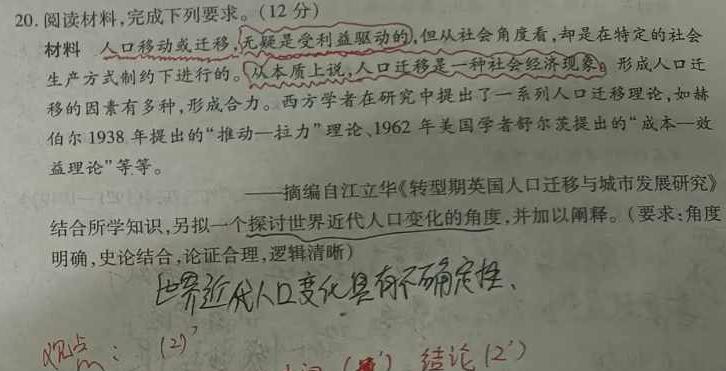 20. 阅读材料,完成下列要求。(12 分)
材料 人口移动或迁移,无疑是受利益驱动的,但从社会角度看,却是在特定的社会
生产方式制约下进行的。从本质上说,人口迁移是一种社会经济现象。形成人口迁
移的因素有多种,形成合力。西方学者在研究中提出了一系列人口迁移理论,如赫
伯尔 1938 年提出的“推动—拉力”理论、1962 年美国学者舒尔茨提出的“成本—效
益理论”等等。
——摘编自江立华《转型期英国人口迁移与城市发展研究》
结合所学知识,另拟一个探讨世界近代人口变化的角度,并加以阐释。(要求:角度
明确,史论结合,论证合理,逻辑清晰)
世界近代人口变化具有不确定性、
观点: (2)' 结论(2')